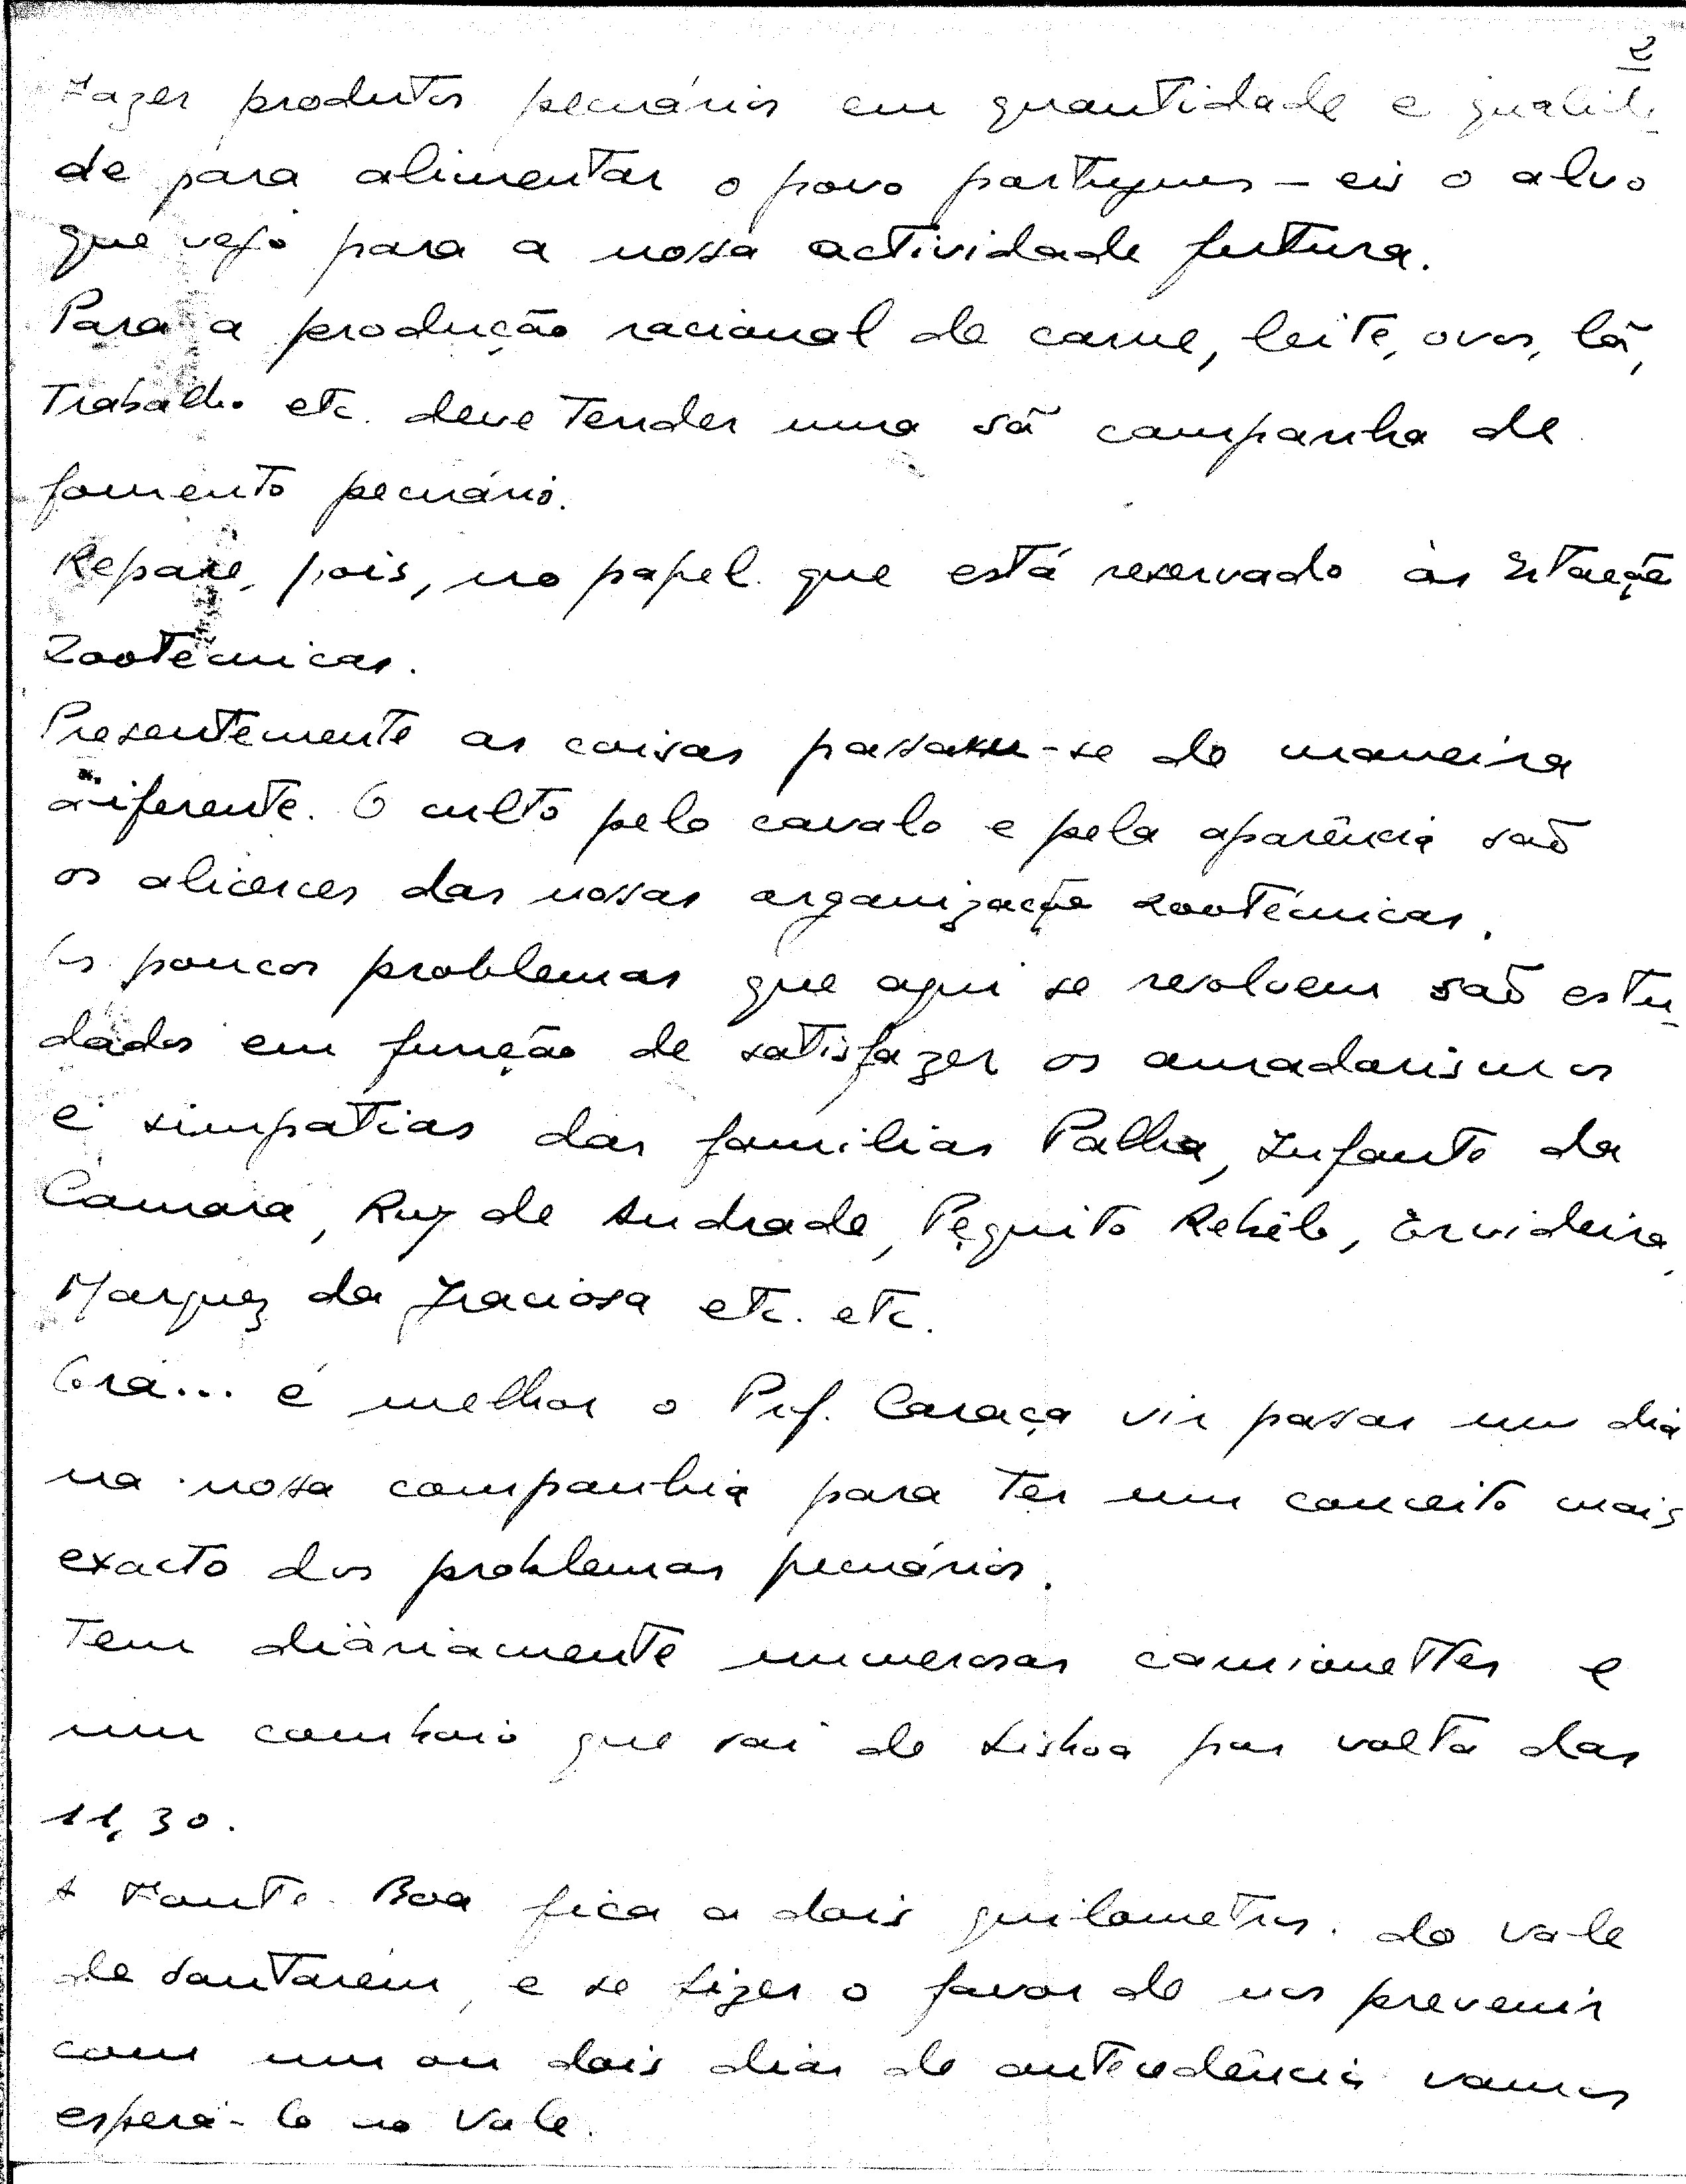 2
Fazer produtos pecuários em quantidade e qualida-
de para alimentar o povo portuguez – eis o alvo
que vejo para a nossa actividade futura.
Para a produção racional de carne, leite, ovos, lã,
Trabalho etc. deve Tender uma sã campanha de
fomento pecuário.
Repare, pois, no papel que está reservado às Estações
Zootécnicas.
Presentemente as coisas passam-se de maneira
diferente. O culto pelo cavalo e pela aparência são
os alicerces das nossas organizações zootécnicas.
Os poucos problemas que aqui se resolvem são estu-
dados em função de satisfazer os amadorismos
e simpatias das familias Palha, Infante da
Camara, Ruy de Andrade, Pequito Rebêlo, Ervideira,
Marquez da Graciosa etc. etc.
Ora... é melhor o Prof. Caraça vir passar um dia
na nossa companhia para Ter um conceito mais
exacto dos problemas pecuários.
Tem diàriamente numerosas camionettes e
um comboio que sai de Lisboa por volta das
11,30.
A Fonte Boa fica a dois quilometros do Vale
de Santarem, e se fizer o favor de nos prevenir
com um ou dois dias de antecedência vamos
esperá-lo no Vale.